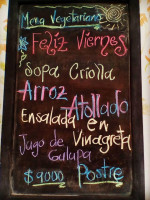 Menú Vegetariano
Feliz Viernes
Sopa Criolla
Arroz
Atollado
Ensalada en
Vinagreta
Jugo de
Gulupa
$9000 Postre